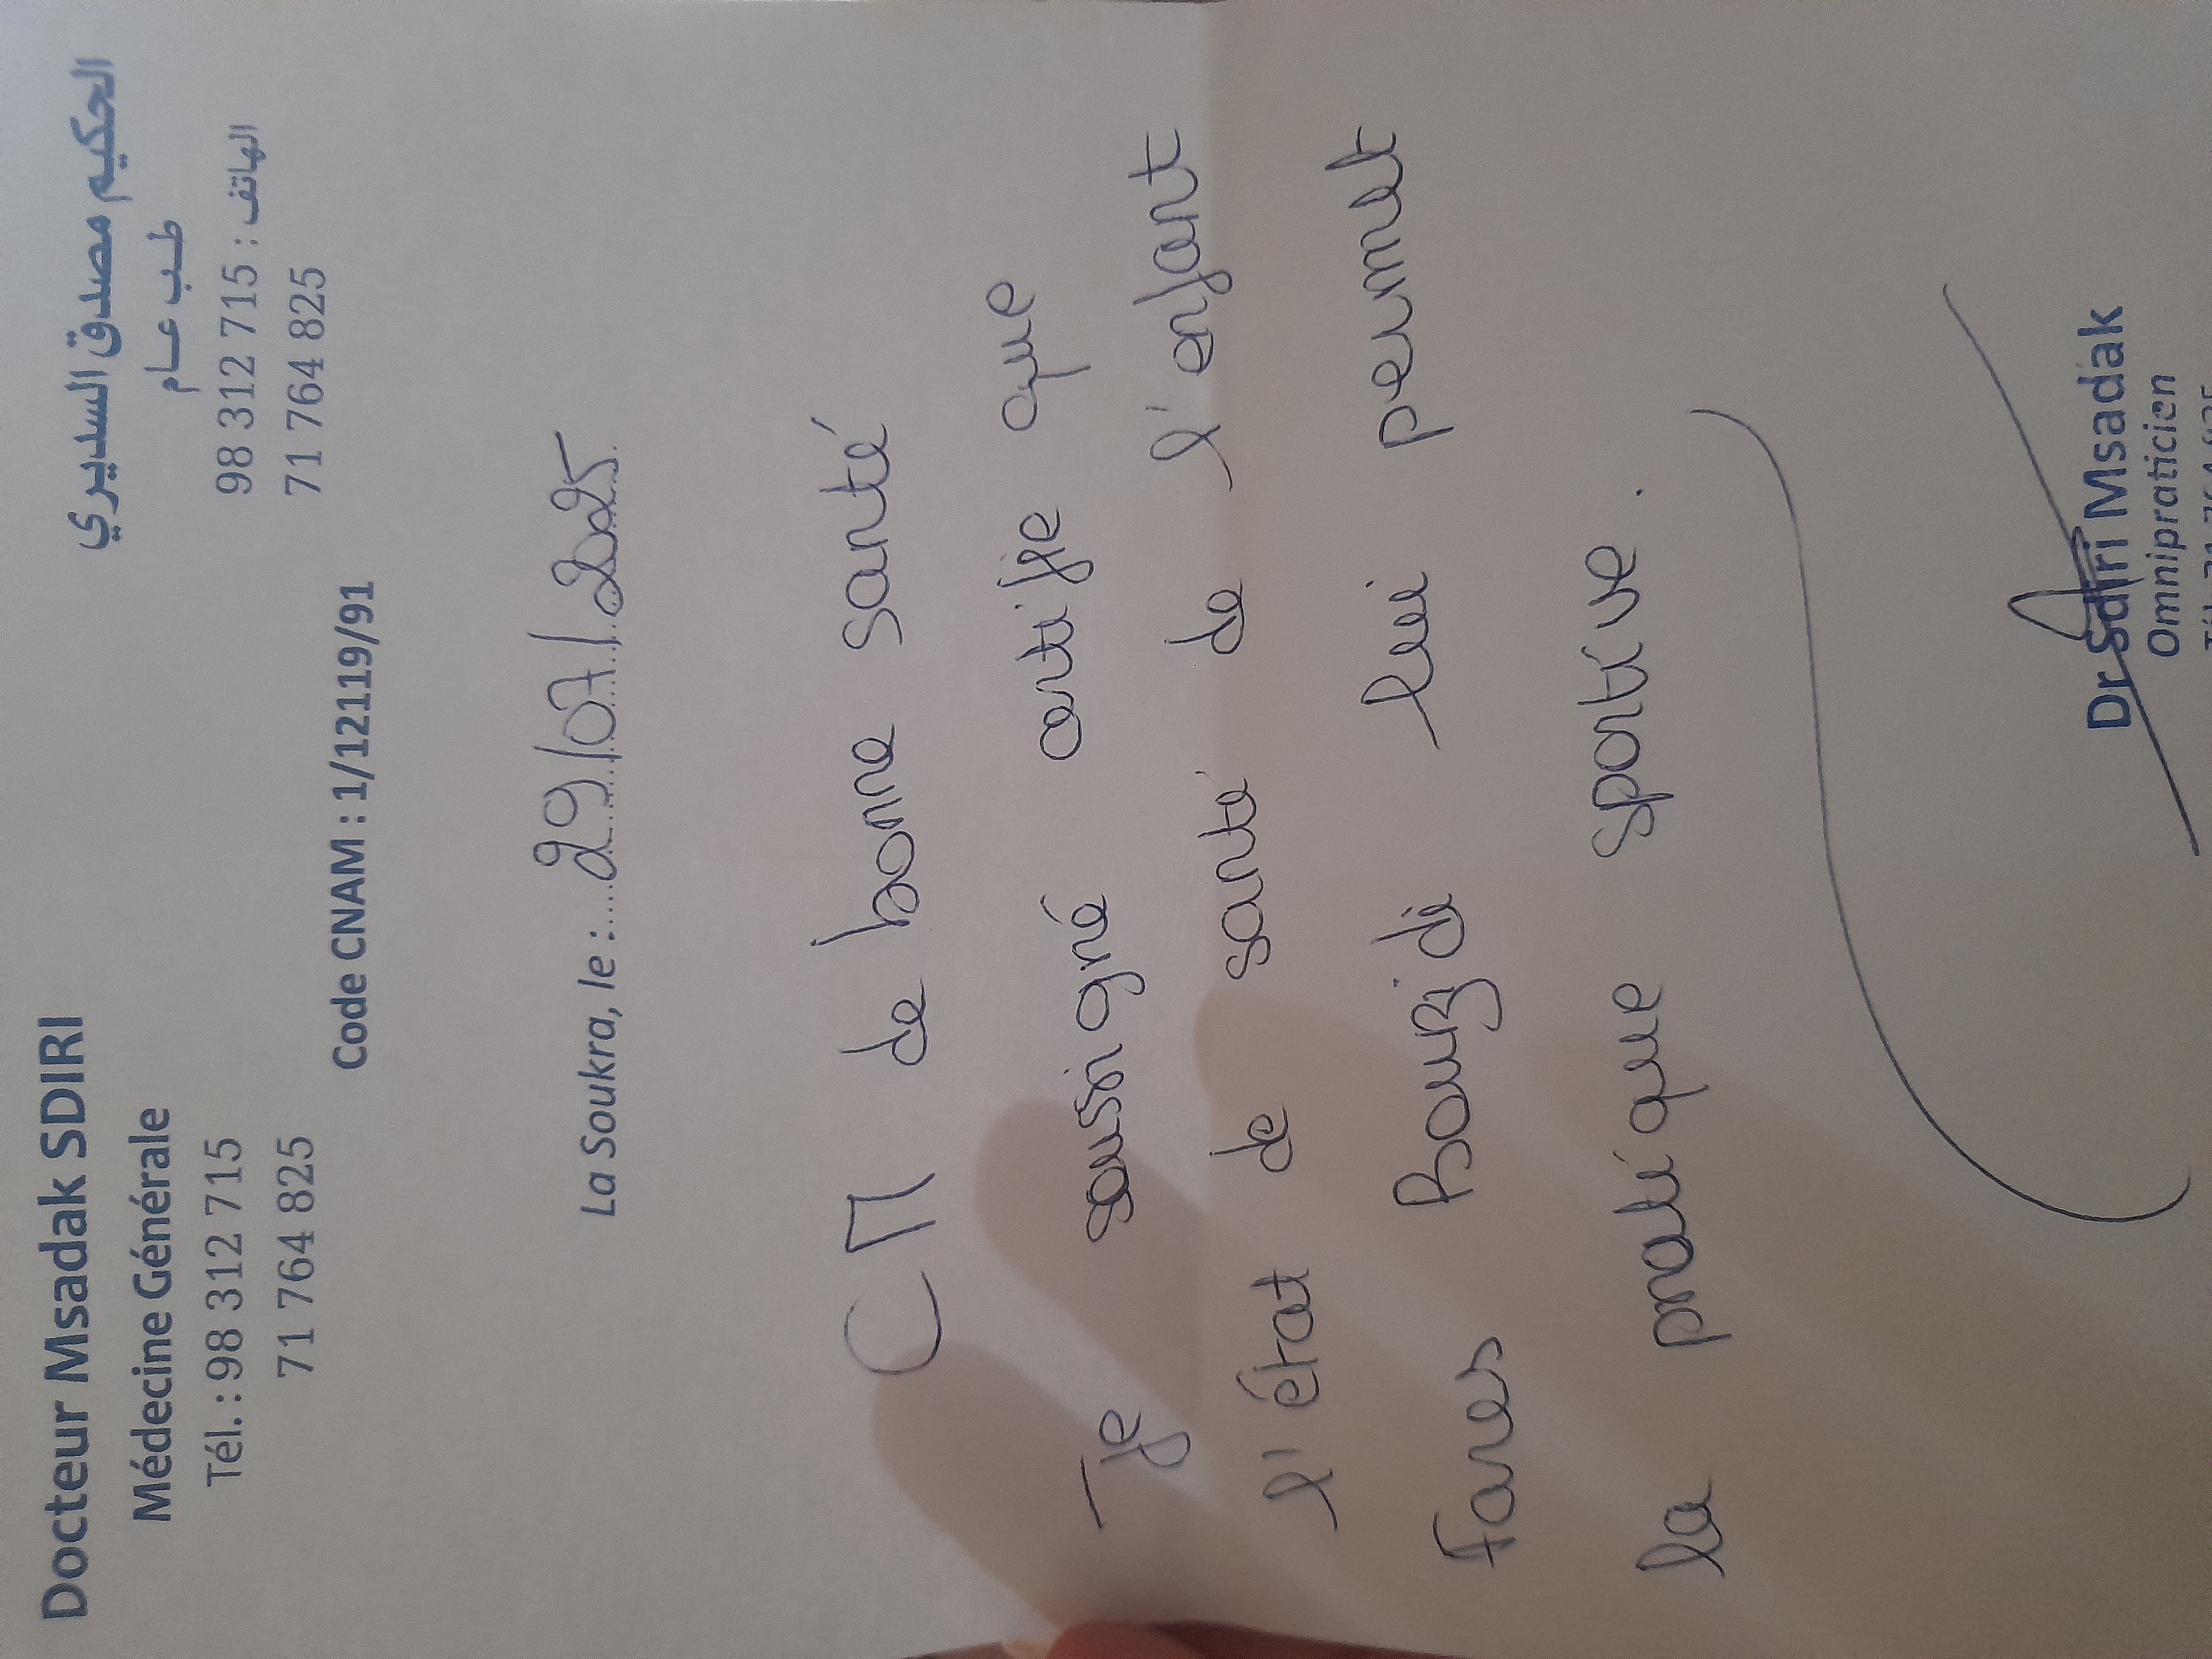 Docteur Msadak SDIRI
Médecine Générale
Tél. : 98 312 715
71 764 825
الحكيم مصدق السديري
طب عام
الهاتف : 98 312 715
71 764 825
Code CNAM : 1/12119/91
La Soukra, le : 29/07/2025
CM de bonne santé
Je soussigné certifie que
l'état de santé de l'enfant
Fares Bouzidi lui permet
la pratique sportive.
Dr Sdiri Msadak
Omnipraticien